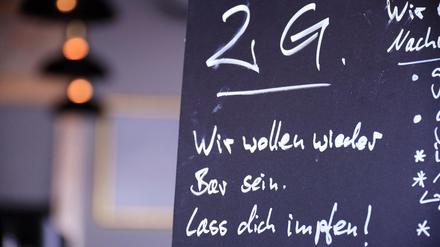 2 G.
Wir wollen wieder
Bar sein.
Lass dich impfen!
Wir
Nach